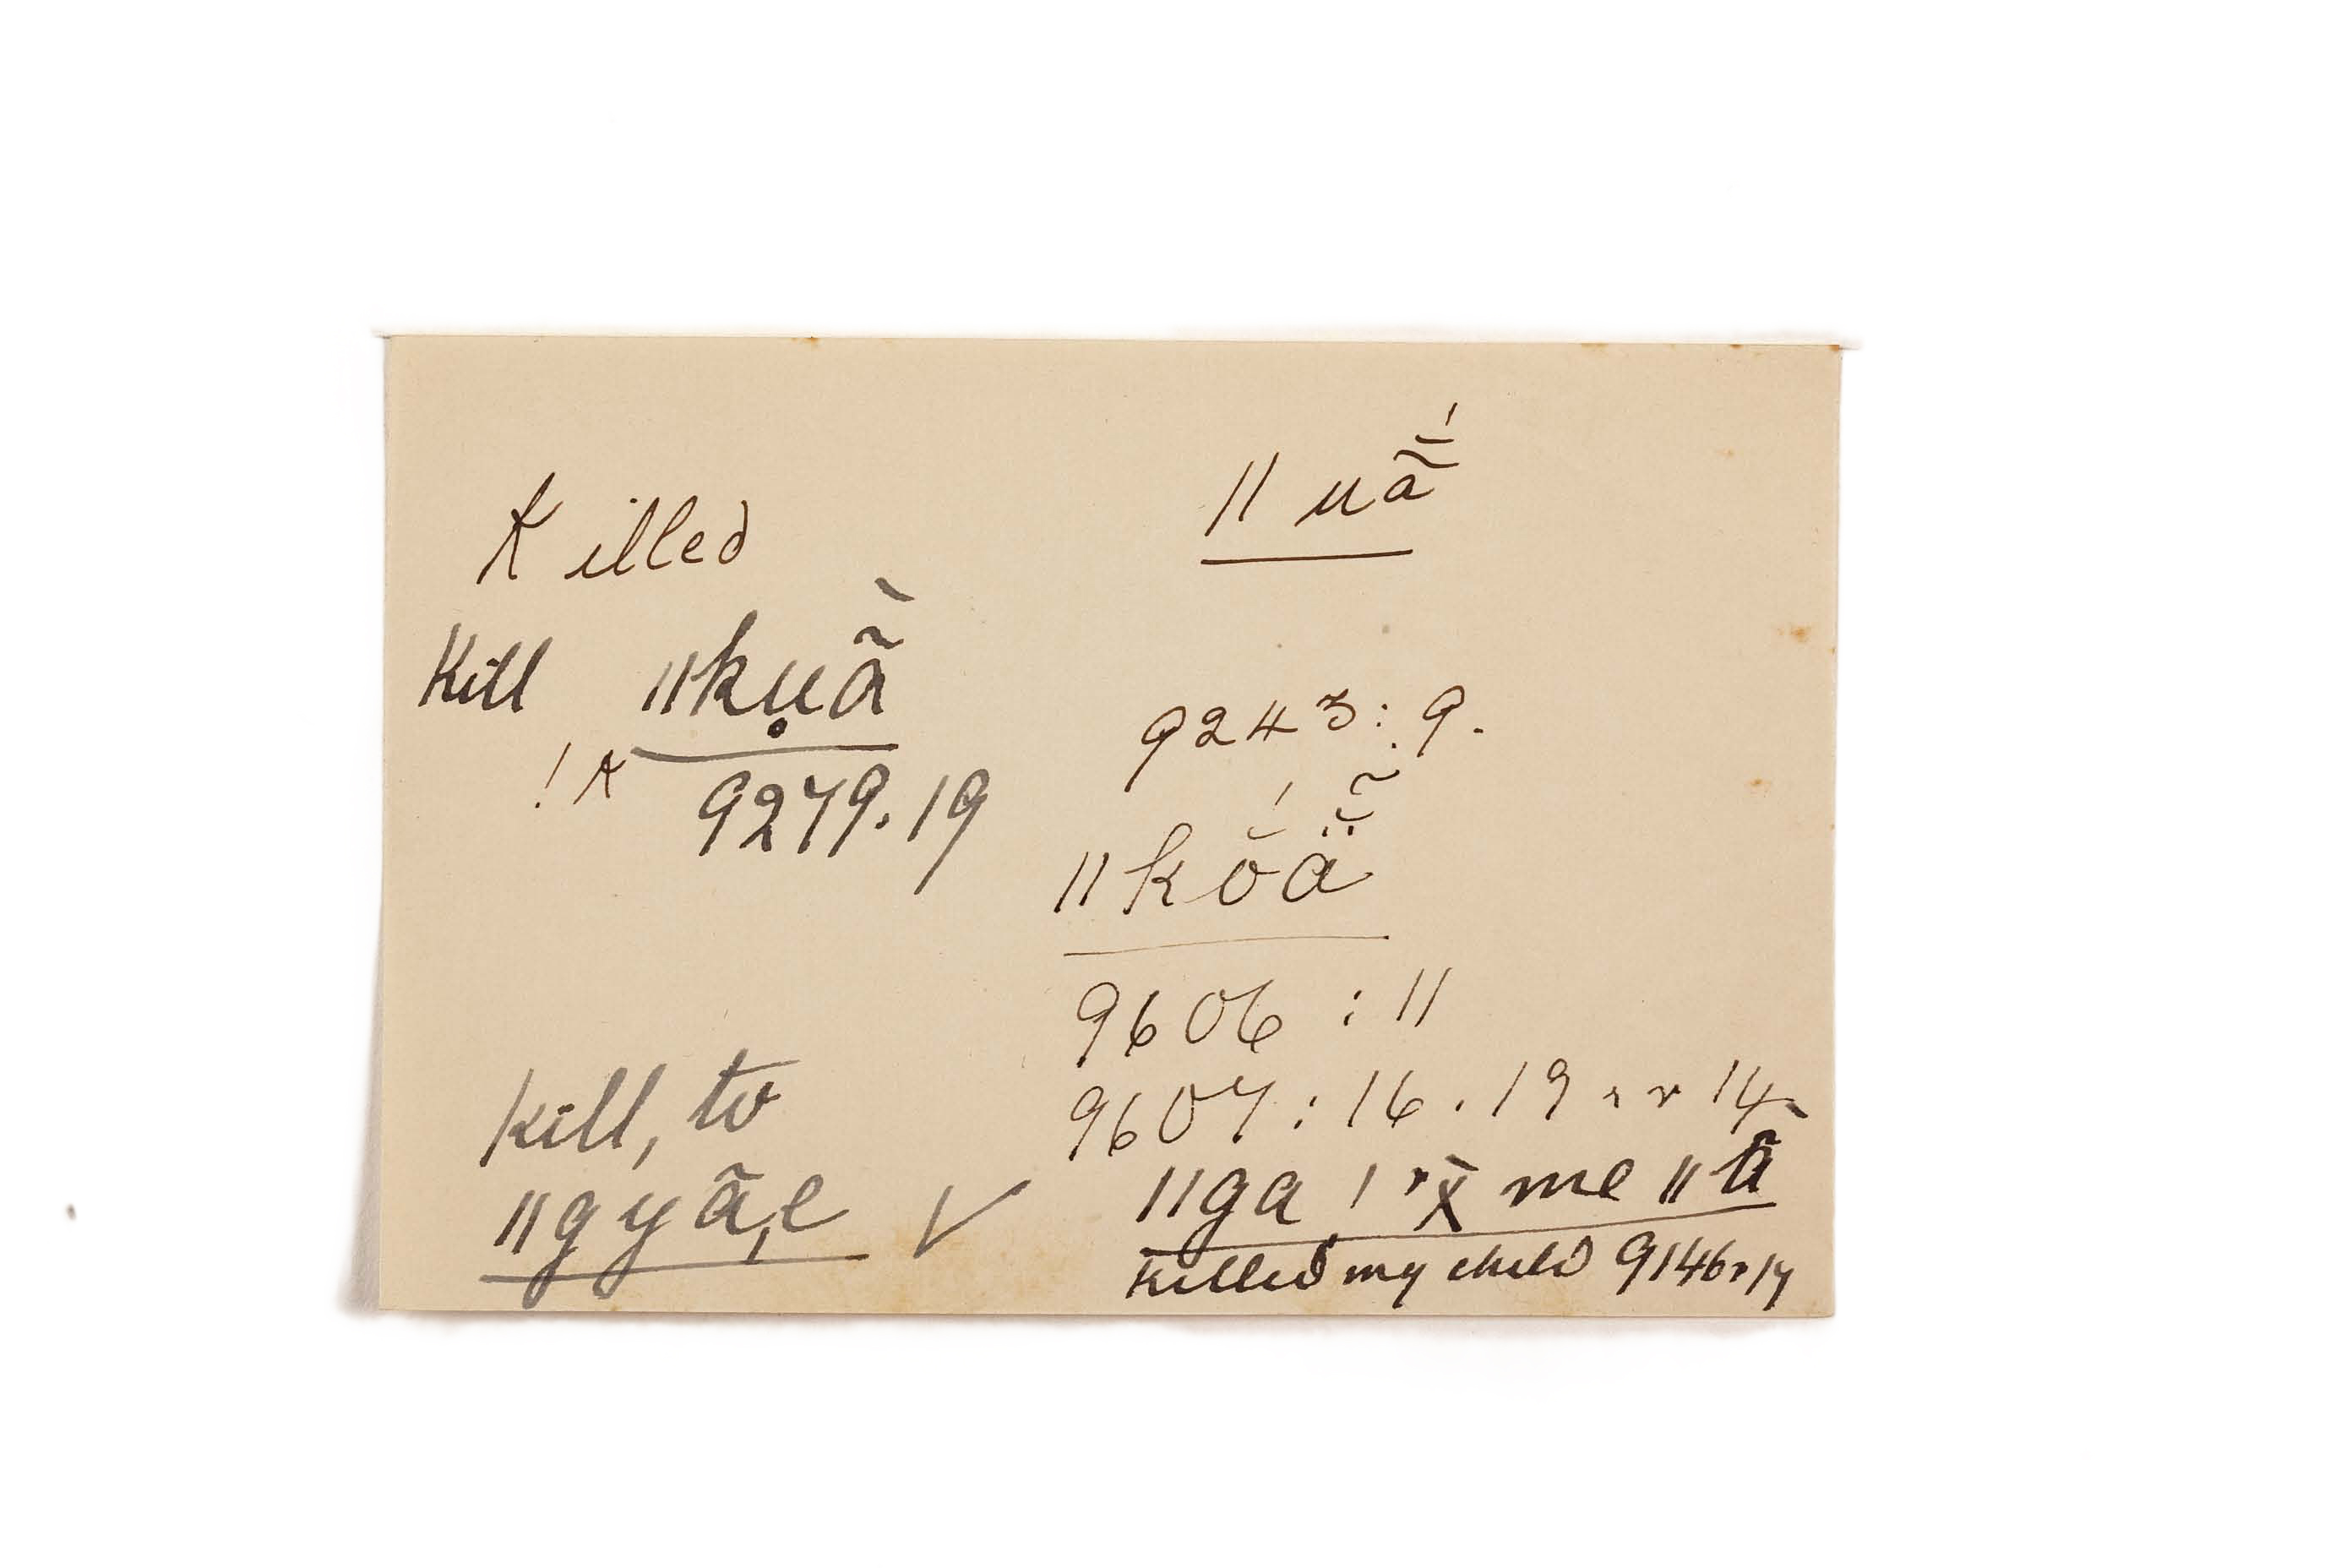 Killed
Kill ǁkụã̀
!k
9279.19
kill, to
ǁgyã,e ✓
ǁuã̄́
9243:9.
ǁkŏ́ä̆̃
9606:11
9607:16.19 14
ǁga me ǁã̀
Killed my child 9146.17